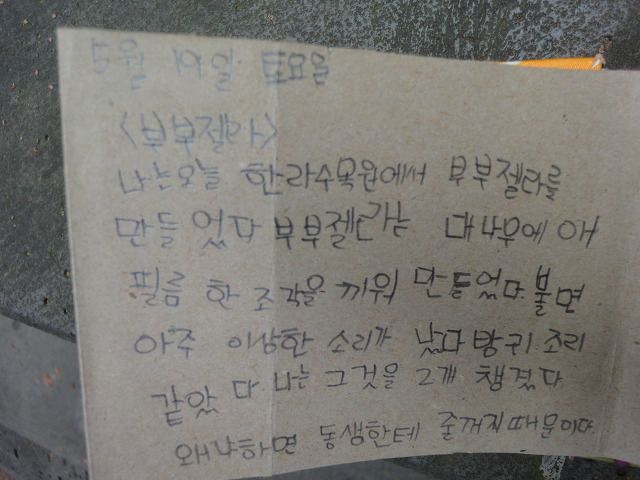 5월 19일 토요일
<부부젤라>
나는오늘 한라수목원에서 부부젤라를
만들었다 부부젤라는 대나무에 애
필름 한 조각을 끼워 만들었다. 불면
아주 이상한 소리가 났다 방귀 조리
같았다 나는 그것을 2개 챙겼다
왜냐하면 동생한테 줄꺼지때문이다.